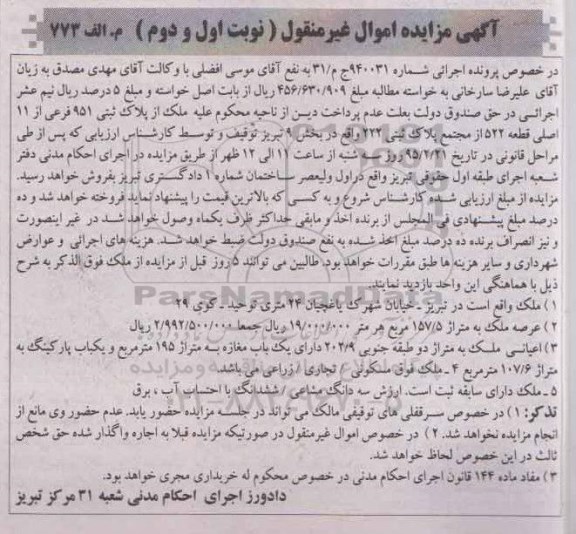 آگهی مزایده اموال غیرمنقول ( نوبت اول و دوم ) م.الف ۷۷۳
در خصوص پرونده اجرائی شماره ۹۴۰۰۳۱ج م/۳۱ به نفع آقای موسی افضلی با وکالت آقای مهدی مصدق به زیان
آقای علیرضا سارخانی به خواسته مطالبه مبلغ ۴۵۶/۶۳۰/۹۰۹ ریال از بابت اصل خواسته و مبلغ ۵ درصد ریال نیم عشر
اجرائی در حق صندوق دولت بعلت عدم پرداخت دین از ناحیه محکوم علیه ملک از پلاک ثبتی ۹۵۱ فرعی از ۱۱
اصلی قطعه ۵۲۲ از مجتمع پلاک ثبتی ۲۲۴ واقع در بخش ۹ تبریز توقیف و توسط کارشناس ارزیابی که پس از طی
مراحل قانونی در تاریخ ۹۵/۲/۲۱ روز سه شنبه از ساعت ۱۱ الی ۱۲ ظهر از طریق مزایده در اجرای احکام مدنی دفتر
شعبه اجرای طبقه اول حقوقی تبریز واقع دراول ولیعصر ساختمان شماره ۱ دادگستری تبریز بفروش خواهد رسید.
مزایده از مبلغ ارزیابی شده کارشناس شروع و به کسی که بالاترین قیمت را پیشنهاد نماید فروخته خواهد شد و ده
درصد مبلغ پیشنهادی فی المجلس از برنده اخذ و مابقی حداکثر ظرف یکماه وصول خواهد شد در غیر اینصورت
و نیز انصراف برنده ده درصد مبلغ اخذ شده به نفع صندوق دولت ضبط خواهد شد. هزینه های اجرائی و عوارض
شهرداری و سایر هزینه ها طبق مقررات خواهد بود. طالبین می توانند ۵ روز قبل از مزایده از ملک فوق الذکر به شرح
ذیل با هماهنگی این واحد بازدید نمایند.
ParsNamadData
۱) ملک واقع است در تبریز ـ خیابان شهرک باغچیان ۲۴ متری توحید ـ کوی ۲۹
۲) عرصه ملک به متراژ ۱۵۷/۵ مربع هر متر ۱۹/۰۰۰/۰۰۰ ریال جمعا ۲/۹۹۲/۵۰۰/۰۰۰ ریال
۳) اعیانی ملک به متراژ دو طبقه جنوبی ۲۰۲/۹ دارای یک باب مغازه به متراژ ۱۹۵ مترمربع و یکباب پارکینگ به
متراژ ۱۰۷/۶ مترمربع ۴ ـ ملک فوق مسکونی / تجاری / زراعی می باشد
۵ ـ ملک دارای سابقه ثبت است. ارزش سه دانگ مشاعی / ششدانگ با احتساب آب ، برق
تذکر: ۱) در خصوص سرقفلی های توقیفی مالک می تواند در جلسه مزایده حضور یابد. عدم حضور وی مانع از
انجام مزایده نخواهد شد. ۲) در خصوص اموال غیرمنقول در صورتیکه مزایده قبلا به اجاره واگذار شده حق شخص
ثالث در این خصوص لحاظ خواهد شد.
۳) مفاد ماده ۱۴۴ قانون اجرای احکام مدنی در خصوص محکوم له خریداری مجری خواهد بود.
دادورز اجرای احکام مدنی شعبه ۳۱ مرکز تبریز